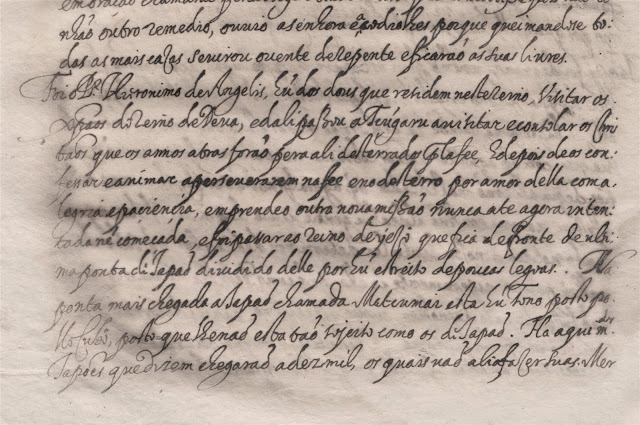 não outro remedio, ouvio a senhora e acodio lhes porque queimandose to-
das as mais cazas se virou o vento de repente e ficarão as suas liures.
Foi o Pe. Hieronimo de Angelis, hũ dos dous que residem neste reino, Visitar os
Xpãos do reino de Deua, e dali passou a Tçugaru a visitar e consolar os Chri
stãos que os annos atras forão pera ali desterrados pla fee, e depois de os con-
fessar e animar a perseuerarem na fee e no desterro por amor della com a
legria e paciencia, emprendeo outra noua missão nunca ate agora inten-
tada nẽ começada, e foi passar ao reino de Yeso que fica defronte da ulti
ma ponta de Japão diuidido delle por hũ estreito de poucas legoas. Na
ponta mais chegada a Japão chamada Matçumai esta hũ Tono posto po
llo Cubo, posto que não esta tão sojeito como os de Japão. Ha aqui mtos
Japões que dizem chegarão a dez mil, os quais uão ali a fazer suas Mer